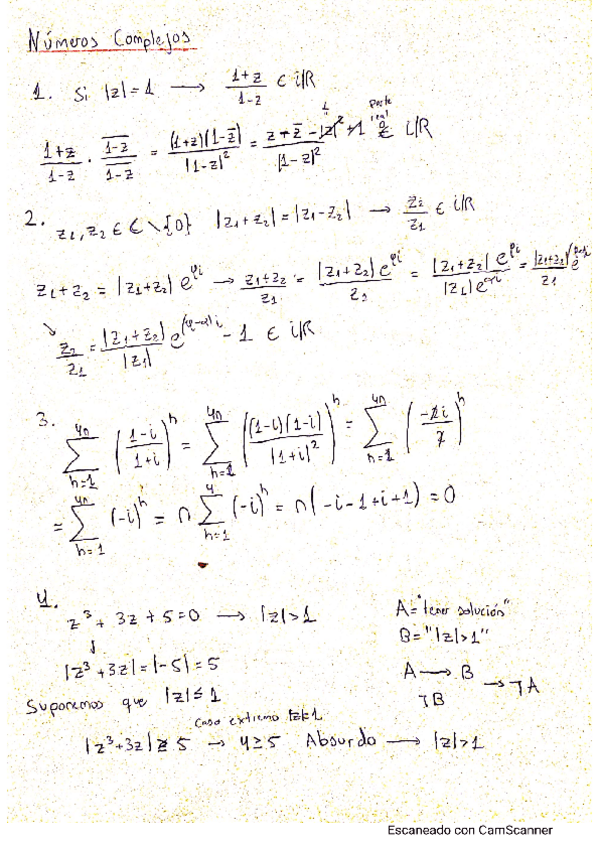 Números Complejos
1. Si |z|=1 → (1+z)/(1-z) ∈ iℝ
(1+z)/(1-z) · \overline{1-z}/\overline{1-z} = (1+z)(1-\bar{z})/|1-z|² = (z-\bar{z}-|z|²+1)/|1-z|² ∈ iℝ
1 parte real 0
2. z₁, z₂ ∈ ℂ\{0} |z₁+z₂|=|z₁-z₂| → z₂/z₁ ∈ iℝ
z₁+z₂ = |z₁+z₂| e^{φi} → (z₁+z₂)/z₁ = |z₁+z₂|e^{φi}/z₁ = |z₁+z₂| e^{φi}/|z₁|e^{αi} =
↘ z₂/z₁ = |z₁+z₂|/|z₁| e^{(φ-α)i} - 1 ∈ iℝ
3. ∑_{h=1}^{4n} ((1-i)/(1+i))^h = ∑_{h=1}^{4n} ((1-i)(1-i)/|1+i|²)^h = ∑_{h=1}^{4n} (-2i/2)^h
= ∑_{h=1}^{4n} (-i)^h = n ∑_{h=1}^{4} (-i)^h = n(-i-1+i+1) = 0
4. z³ + 3z + 5 = 0 → |z|>1
A="tener solución"
B="|z|>1"
|z³+3z|=|-5|=5
A → B
¬B → ¬A
Suponemos que |z|≤1
caso extremo |z|=1
|z³+3z| ≥ 5 → 4≥5 Absurdo → |z|>1
Escaneado con CamScanner